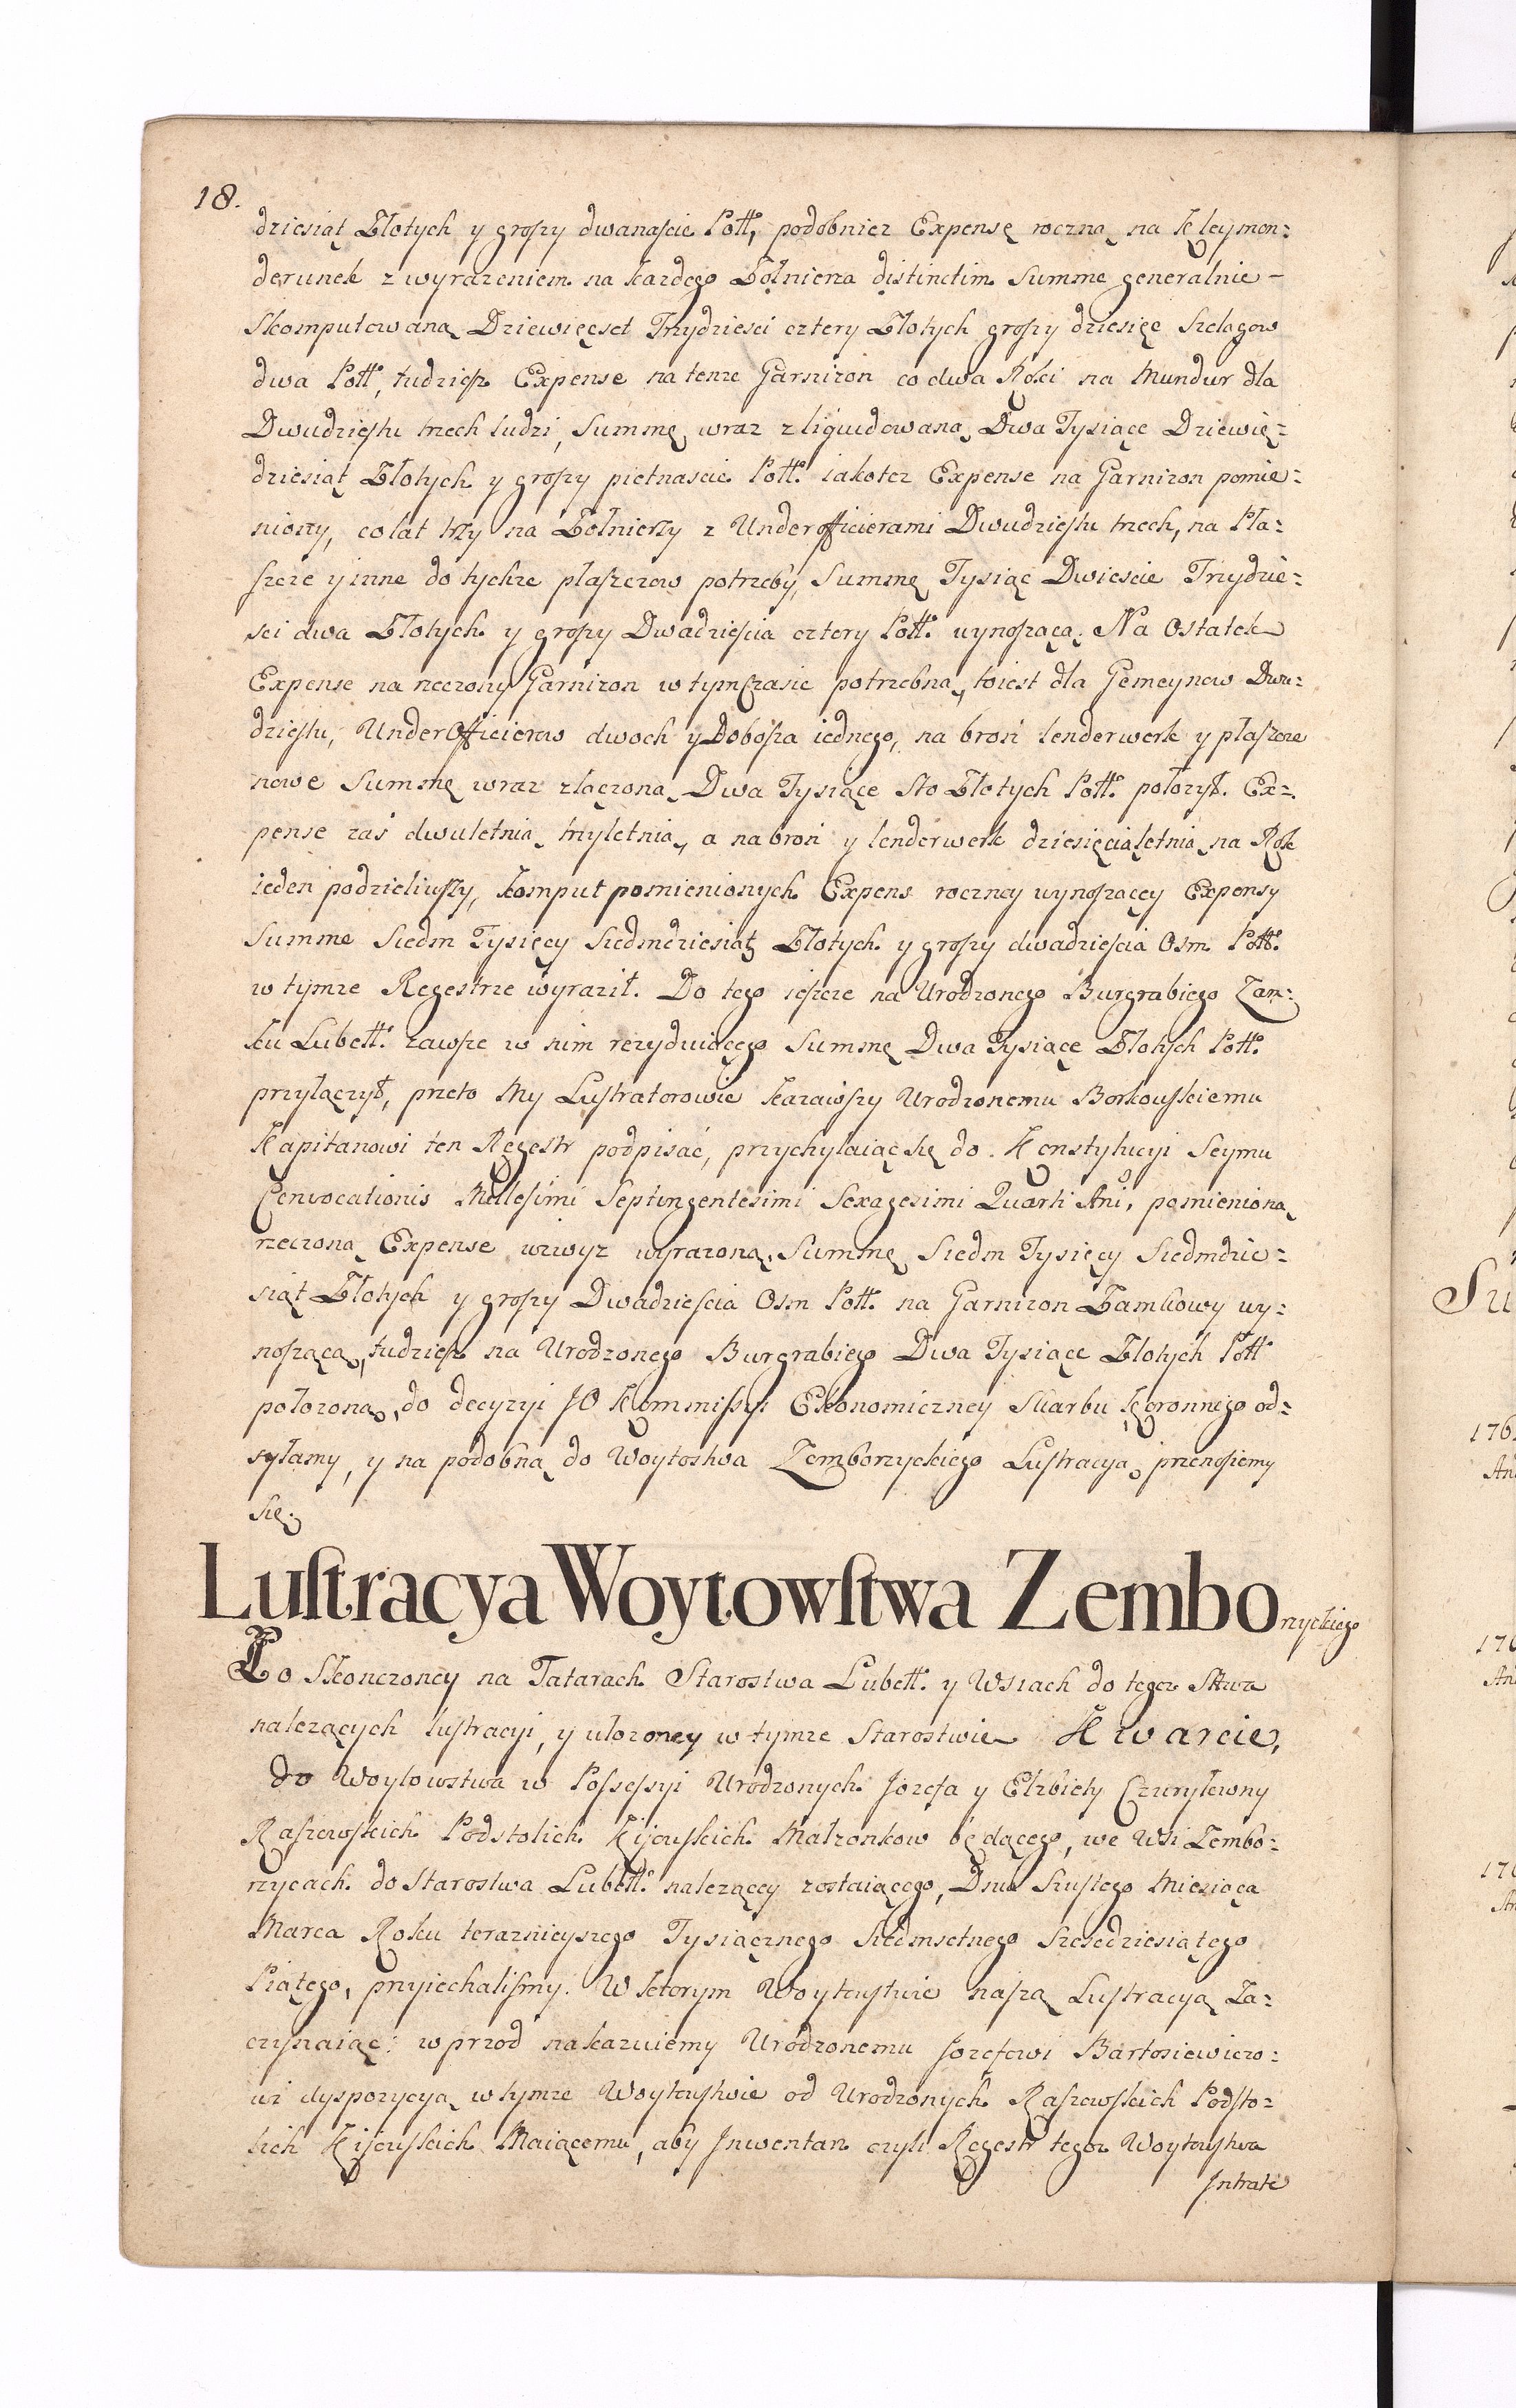 18.
dziesiąt Złotych y groszy dwanaście Poll, podobniez Expensę roczną na Kleymon:
derunek z wyrazeniem na kazdego Zołnierza distinctim Summę generalnie –
Skomputowaną Dziewięcset Trzydziesci cztery Złotych groszy dziesięc Szelągow
dwa Poll, tudziesz Expense na tenze Garnizon co dwa Roki na Mundur dla
Dwudziestu trzech ludzi, Summę wraz zliquidowaną, Dwa Tysiące Dziewię:
dziesiąt Złotych y groszy pietnascie Poll. iakotez Expense na Garnizon pomie:
niony, co lat trzy na Zołnierzy z Underofficierami Dwudziestu trzech, na Pła:
szcze y inne do tychze płaszczow potrzeby, Summę Tysiąc Dwiescie Trzydzie:
sci dwa Złotych y groszy Dwadziescia cztery Poll. wynoszącą. Na Ostatek
Expense na rzeczony Garnizon w tym czasie potrzebną, toiest dla Gemeynow Dwu:
dziestu, UnderOfficierow dwoch y Dobosza iednego, na broń lenderwerk y płaszcze
nowe Summę wraz złączoną, Dwa Tysiące Sto Złotych Poll. połozył. Ex:
pense zaś dwuletnią, trzyletnią, a na broń y lenderwerk dziesięcialetnią na Rok
ieden podzieliwszy, komput pomienionych Expens roczney wynoszącey Expensy
Summe Siedm Tysięcy Siedmdziesiąt Złotych y groszy dwadziescia Osm Poll.
w tymze Regestrze wyraził. Do tego ieszcze na Urodzonego Burgrabiego Zam:
ku Lubell. zawsze w nim rezyduiącego Summę Dwa Tysiące Złotych Poll.
przyłączył, przeto My Lustratorowie kazawszy Urodzonemu Borkowskiemu
Kapitanowi ten Regestr podpisać, przychylaiąc się do Konstytucyi Seymu
Convocationis Millesimi Septingentesimi Sexagesimi Quarti Ani, pomienioną
rzeczoną Expense wzwyz wyrazoną, Summę Siedm Tysięcy Siedmdzie:
siąt Złotych y groszy Dwadziescia Osm Poll. na Garnizon Zamkowy wy:
noszącą, tudziesz na Urodzonego Burgrabiego Dwa Tysiące Złotych Poll
połozoną, do decyzyi JO Kommissyi Ekonomiczney Skarbu Koronnego od:
syłamy, y na podobną do Woytostwa Zemborzyckiego Lustracyą przenosiemy
się.
Lustracya Woytowstwa Zemborzyckiego
Po Skonczoney na Tatarach Starostwa Lubell. y Wsiach do tegoz Sttwa
nalezących lustracyi, y ułozoney w tymze Starostwie Kwarcie,
do Woytowstwa w Possessyi Urodzonych Jozefa y Elzbiety Czuryłowny
Raszewskich Podstolich Kijowskich Małzonkow będącego, we Wsi Zembo:
rzycach do Starostwa Lubell. nalezącey zostaiącego, Dnia Szustego Miesiąca
Marca Roku teraznieyszego Tysiącznego Siedmsetnego Szescdziesiątego
Piątego, przyiechalismy. W ktorym Woytowstwie naszą Lustracyą Za:
czynaiąc: wprzod nakazuiemy Urodzonemu Jozefowi Bartosiewiczo:
wi dyspozycyą w tymze Woytowstwie od Urodzonych Raszewskich Podsto:
lich Kijowskich Maiącemu, aby Jnwentarz czyli Regestr tegoz Woytowstwa
Jntrate